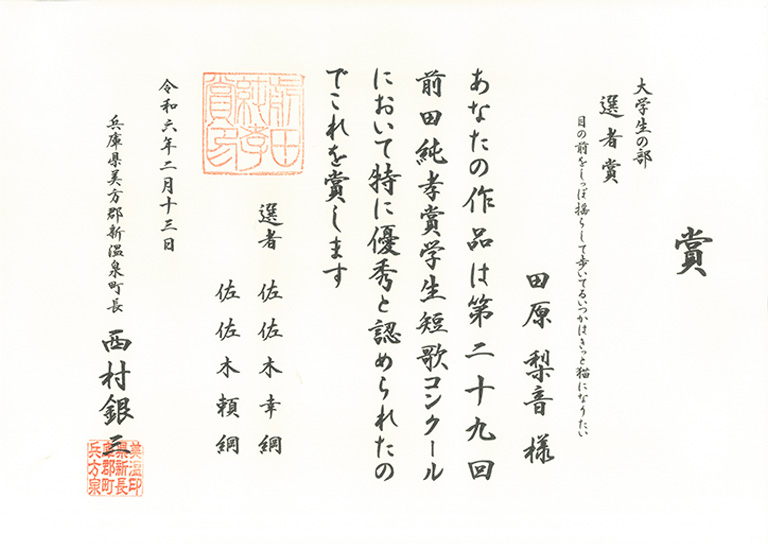 賞
大学生の部
選者賞
目の前をしっぽ揺らして歩いてるいつかはきっと猫になりたい
田原 梨音 様
あなたの作品は第二十九回
前田純孝賞学生短歌コンクール
において特に優秀と認められたの
でこれを賞します
前田
純孝
賞印
選者 佐佐木幸綱
佐佐木頼綱
令和六年二月十三日
兵庫県美方郡新温泉町長 西村銀三
美温印
県新長
庫郡町
兵方泉